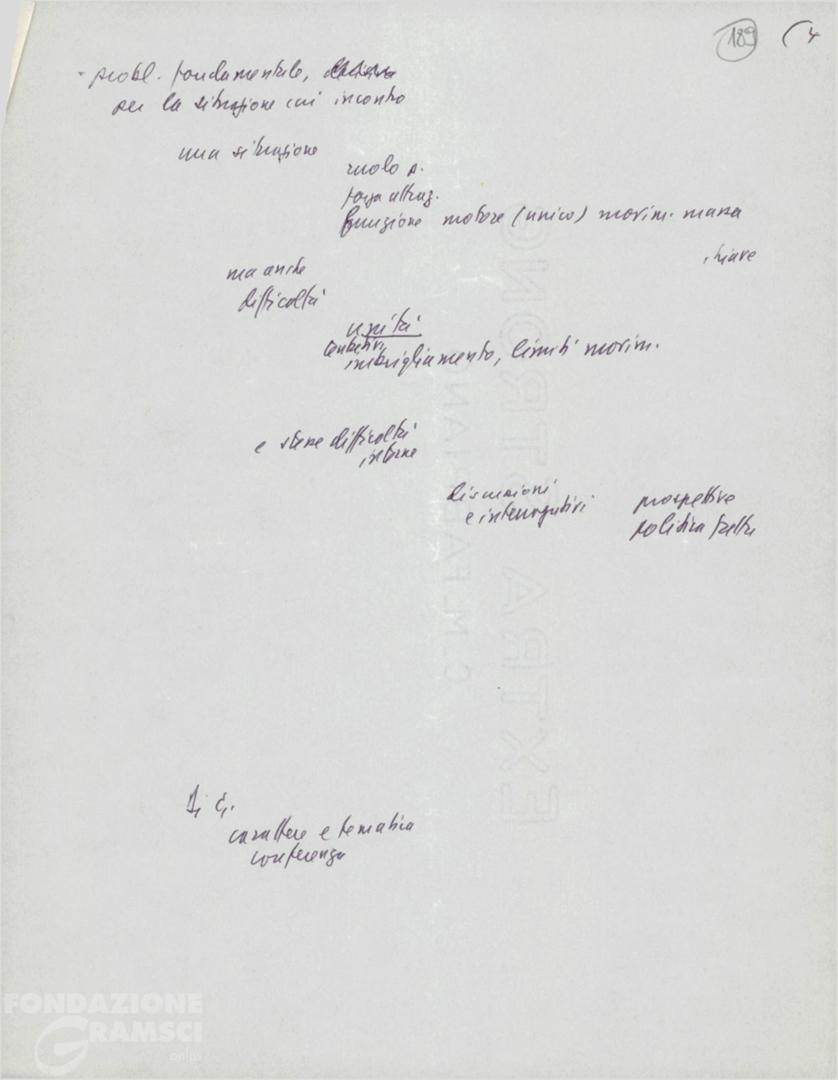 189 (4
- probl. fondamentale,
per la situazione cui incontro
una situazione
ruolo p.
forza attraz.
funzione motore (unico) movim. massa
chiave
ma anche
difficoltà
unità
tentativi
imbrigliamento, limiti movim.
e stesse difficoltà
interne
discussioni
e interrogativi
prospettive
politica fatta
Di q.
carattere e tematica
conferenza
EXTRA STRONG
C. M. FABRIANO
FONDAZIONE
GRAMSCI
online